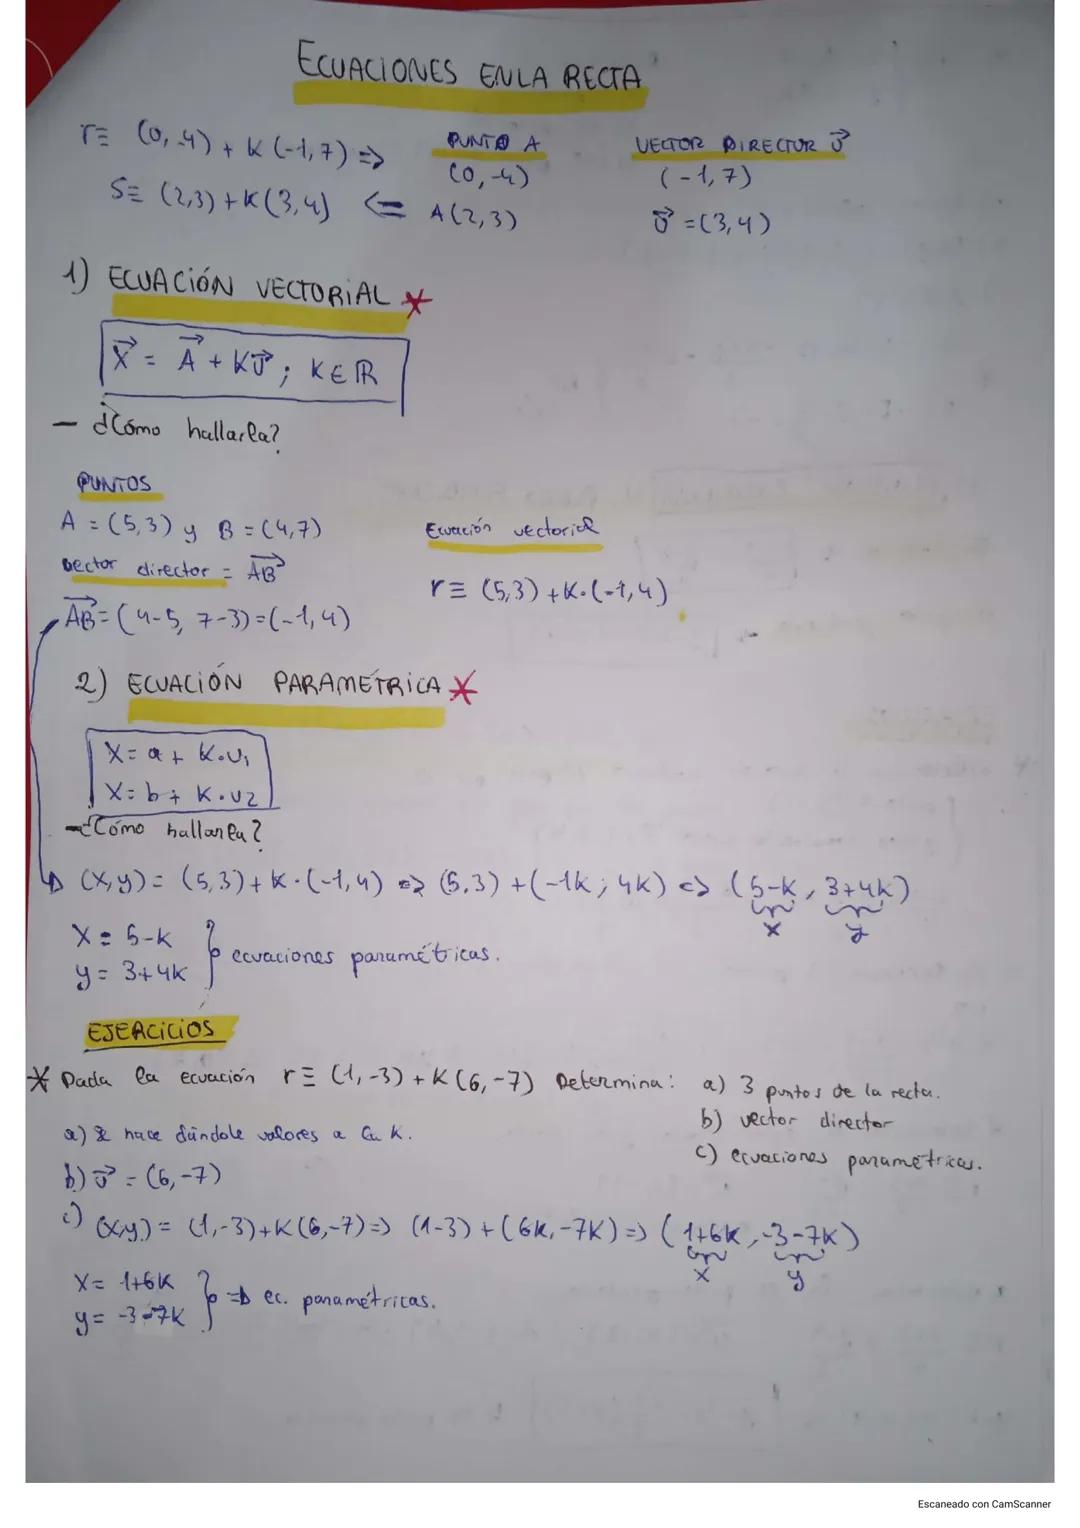 ECUACIONES EN LA RECTA
r≡ (0,-4) + K (-1,7) =>
PUNTO A
(0,-4)
VECTOR DIRECTOR v⃗
(-1,7)
S≡ (2,3) + K (3,4) <= A(2,3)
v⃗ = (3,4)
1) ECUACIÓN VECTORIAL *
X⃗ = A⃗ + Kv⃗ ; K∈ℝ
- ¿Cómo hallarla?
PUNTOS
A = (5,3) y B = (4,7)
vector director = AB⃗
AB⃗ = (4-5, 7-3) = (-1,4)
Ecuación vectorial
r≡ (5,3) + K·(-1,4)
2) ECUACIÓN PARAMÉTRICA *
X = a + K·v₁
X = b + K·v2
- ¿Cómo hallarla?
(X,y) = (5,3) + K·(-1,4) => (5,3) + (-1K; 4K) <=> (5-K, 3+4K)
x y
X = 5-K
y = 3+4K
} ecuaciones paramétricas.
EJERCICIOS
* Dada la ecuación r≡ (1,-3) + K (6,-7) Determina: a) 3 puntos de la recta.
b) vector director
c) ecuaciones paramétricas.
a) Se hace dándole valores a la K.
b) v⃗ = (6,-7)
c) (x,y) = (1,-3) + K (6,-7) => (1-3) + (6K, -7K) => (1+6K, -3-7K)
x y
X = 1+6K
y = -3-7K
} => ec. paramétricas.
Escaneado con CamScanner